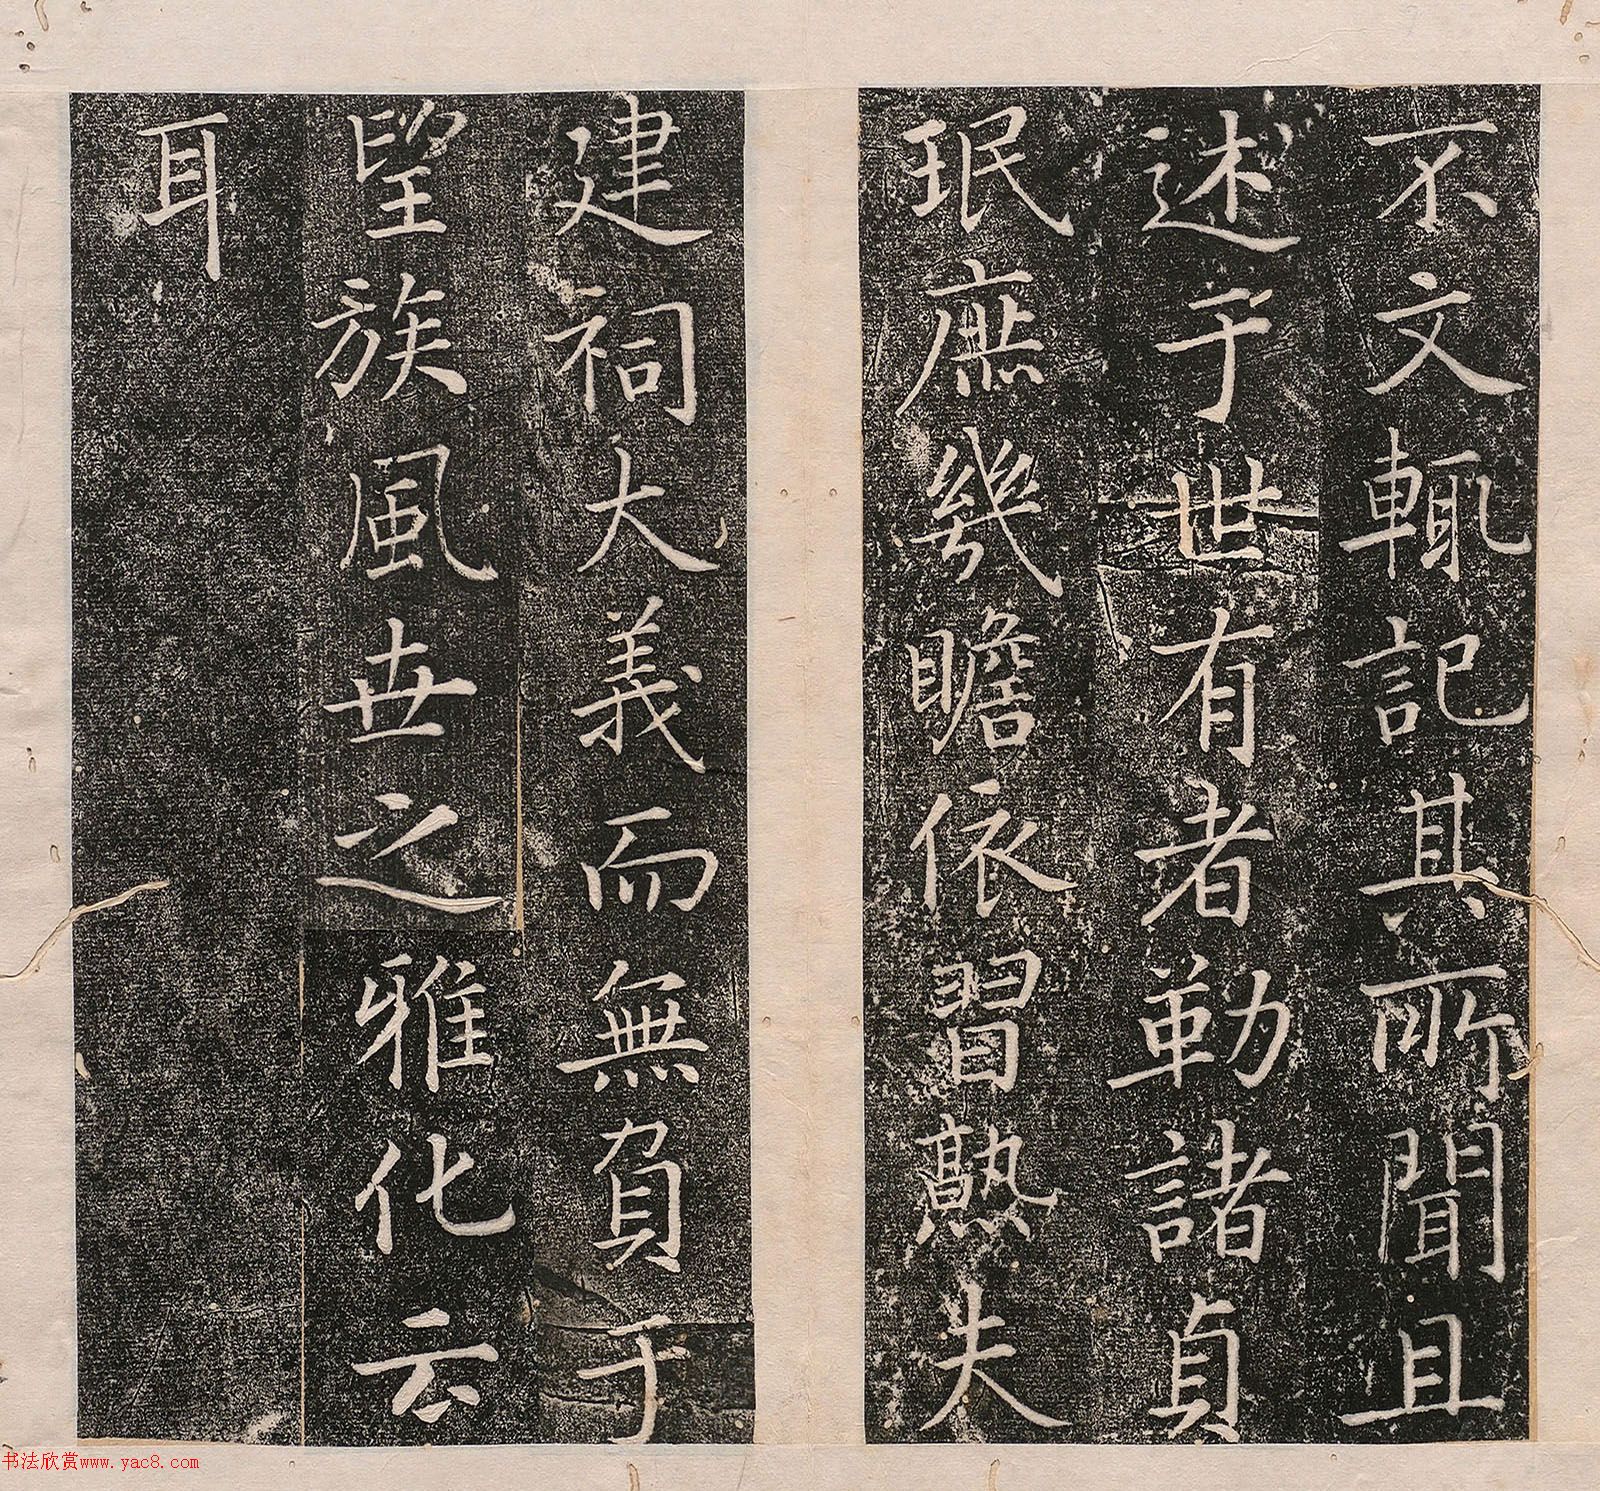 不文輒記其所聞且
述于世有者勒諸貞
珉庶幾瞻依習熟夫
建祠大義而無負于
望族風世之雅化云
耳
书法欣赏www.yac8.com